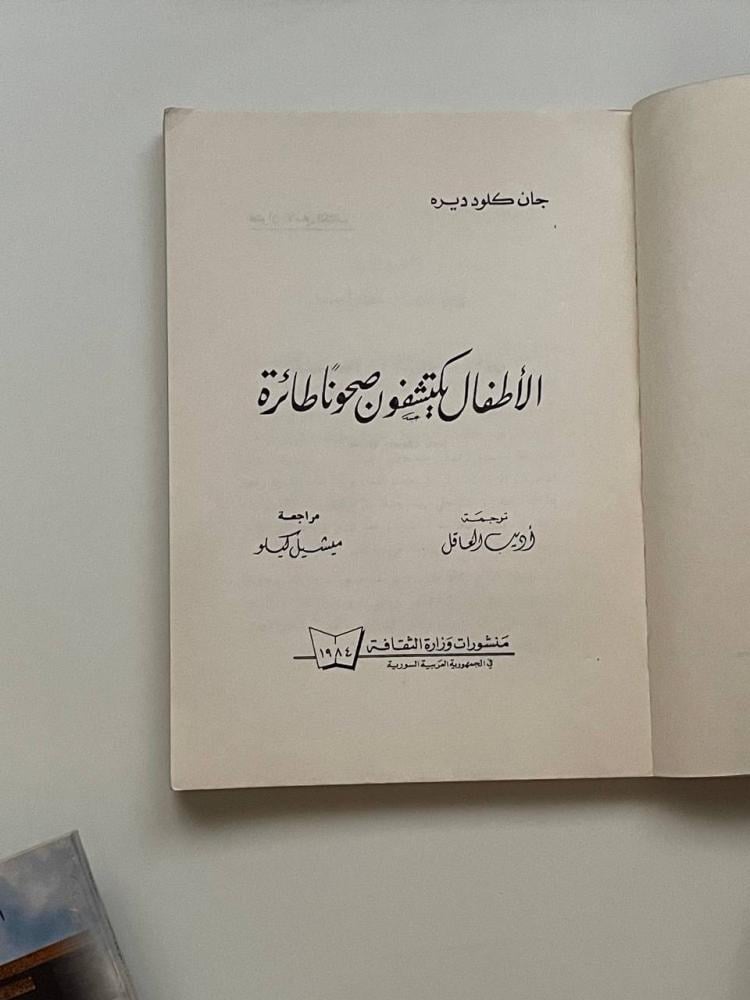 جان كلود ديره
الأطفال يكتشفون صحونًا طائرة
ترجمة
أديب العاقل
مراجعة
ميشيل كيلو
منشورات وزارة الثقافة
في الجمهورية العربية السورية
١٩٨٤